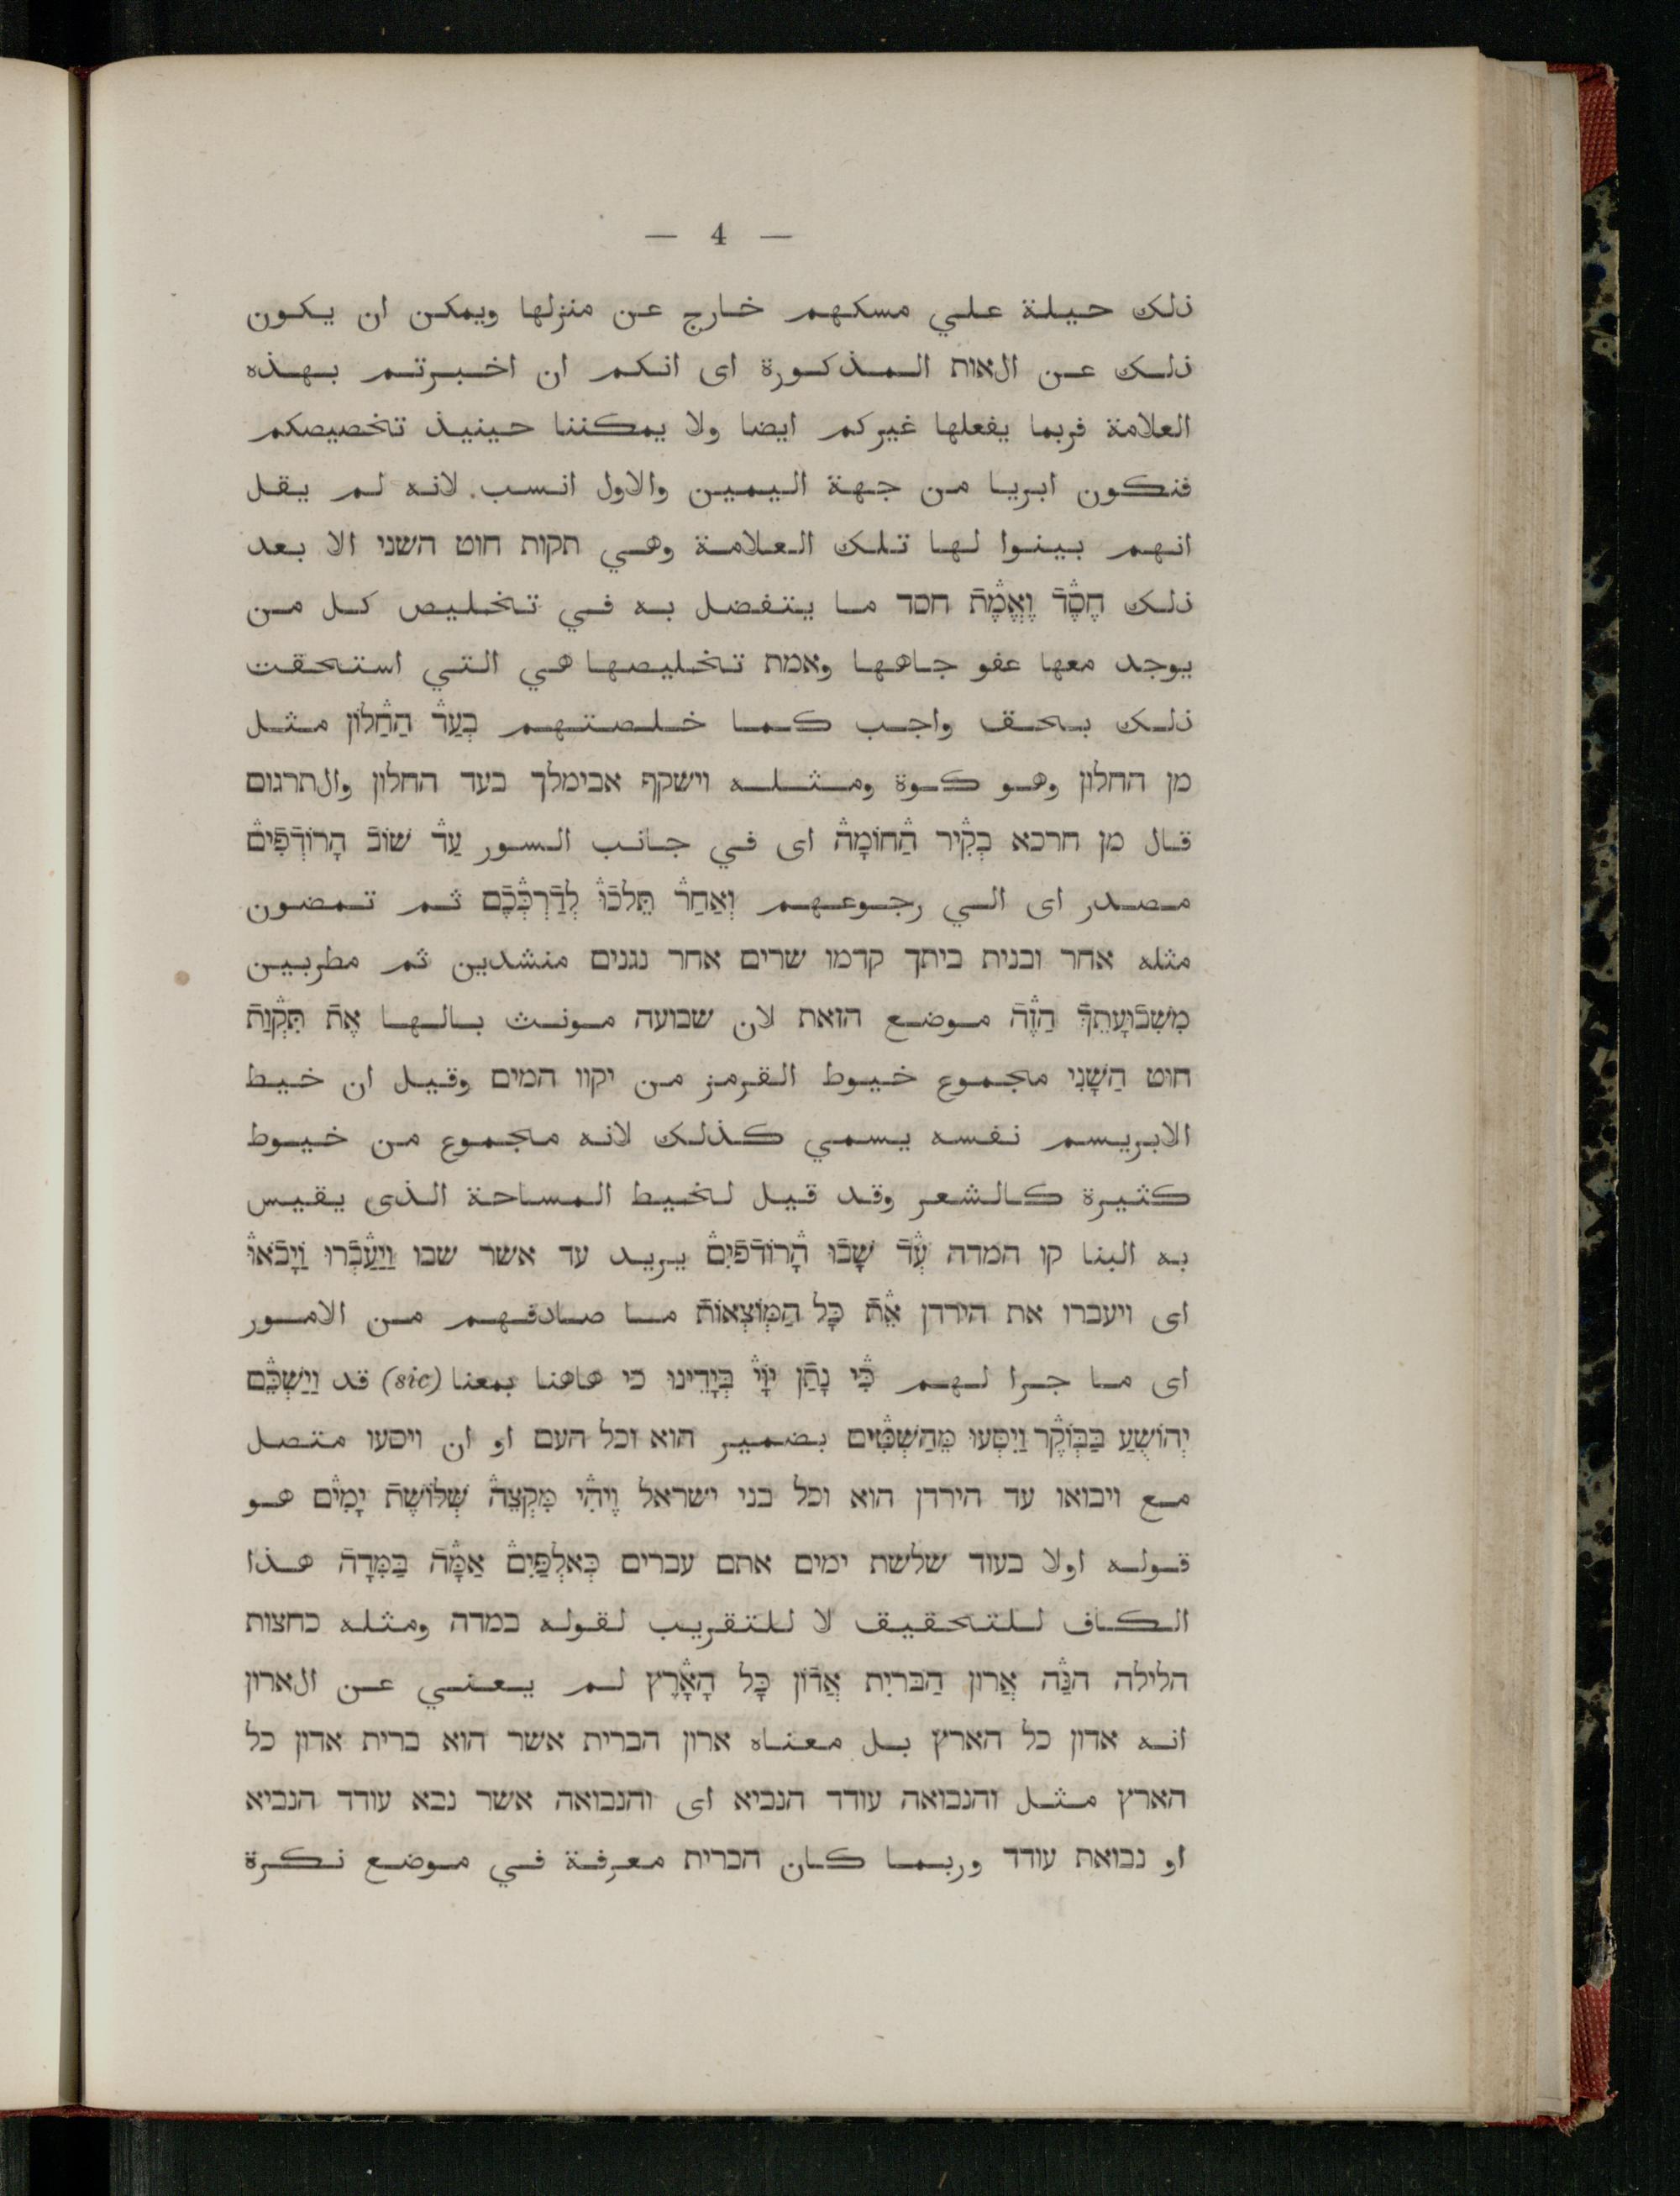 — 4 —
ذلك حيلة علي مسكهم خارج عن منزلها ويمكن ان يكون
ذلك عن الאות المذكورة اى انكم ان اخبرتم بهذه
العلامة فربما يفعلها غيركم ايضا ولا يمكننا حينيذ تخصيصكم
فنكون ابريا من جهة اليمين والاول انسب. لانه لم يقل
انهم بينوا لها تلك العلامة وهي תקות חוט השני الا بعد
ذلك חֶסֶֿד וֶאֱמֶֿת חסד ما يتفضل به في تخليص كل من
يوجد معها عفو جاهها وאמת تخليصها هي التي استحقت
ذلك بحق واجب كما خلصتهم בְעַד הַחַלוֹן مثل
מן החלון وهو كوة ومثله וישקף אבימלך בעד החלון والתרגום
قال מן חרכא בְקִיר הַחוֹמָה اى في جانب السور עַד שׁוֹב הָרוֹדְפִים
مصدر اى الي رجوعهم וְאַחַר תֵּלְכוּ לְדַרְכְּכֶם ثم تمضون
مثله אחר ובנית ביתך קדמו שרים אחר נגנים منشدين ثم مطربين
מִשְּׁבוּעָתֵךְ הַזֶּה موضع הזאת لان שבועה مونث بالها אֶת תִּקְוַת
חוּט הַשָּׁנִי مجموع خيوط القرمز من יקוו המים وقيل ان خيط
الابريسم نفسه يسمي كذلك لانه مجموع من خيوط
كثيرة كالشعر وقد قيل لخيط المساحة الذى يقيس
به البنا קו המדה עַד שָׁבוּ הָרוֹדְפִים يريد עד אשר שבו וַיַּעַבְרוּ וַיָּבֹאוּ
اى ויעברו את הירדן אֵת כָּל הַמּוֹצְאוֹת ما صادفهم من الامور
اى ما جرا لهم כִּי נָתַן יְוָי בְּיָדֵינוּ כי هاهنا بمعنا (sic) قد וַיַּשְׁכֵּם
יְהוֹשֻׁעַ בַּבּוֹקֶר וַיִּסְעוּ מֵהַשִּׁטִּים بضمير הוא וכל העם او ان ויסעו متصل
مع ויבואו עד הירדן הוא וכל בני ישראל וַיְהִי מִקְצֵה שְׁלוֹשֶׁת יָמִים هو
قوله اولا בעוד שלשת ימים אתם עברים כְּאַלְפַּיִם אַמָּה בַּמִּדָּה هذا
الكاف للتحقيق لا للتقريب لقوله במדה ومثله כחצות
הלילה הִנֵּה אֲרוֹן הַבְּרִית אֲדוֹן כָּל הָאָרֶץ لم يعني عن الארון
انه אדון כל הארץ بل معناه ארון הברית אשר הוא ברית אדון כל
הארץ مثل והנבואה עודד הנביא اى והנבואה אשר נבא עודד הנביא
او נבואת עודד وربما كان הברית معرفة في موضع نكرة